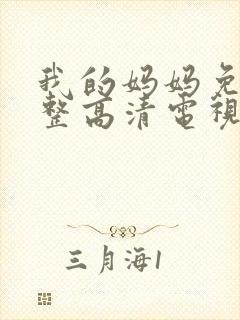 我的妈妈免
整高清電視
三月海1